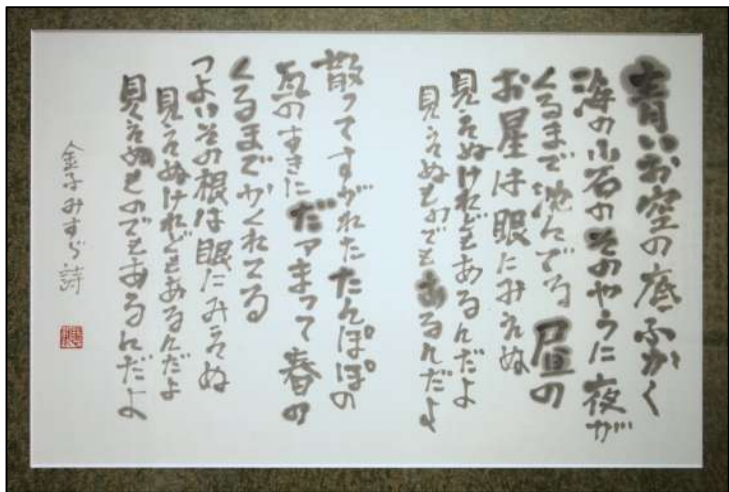 青いお空の底ふかく
海の小石のそのやうに夜が
くるまで沈んでる昼の
お星は眼にみえぬ
見えぬけれどもあるんだよ
見えぬものでもあるんだよ
散ってすがれたたんぽぽの
瓦のすきにだァまって春の
くるまでかくれてる
つよいその根は眼にみえぬ
見えぬけれどもあるんだよ
見えぬものでもあるんだよ
金子みすゞ詩